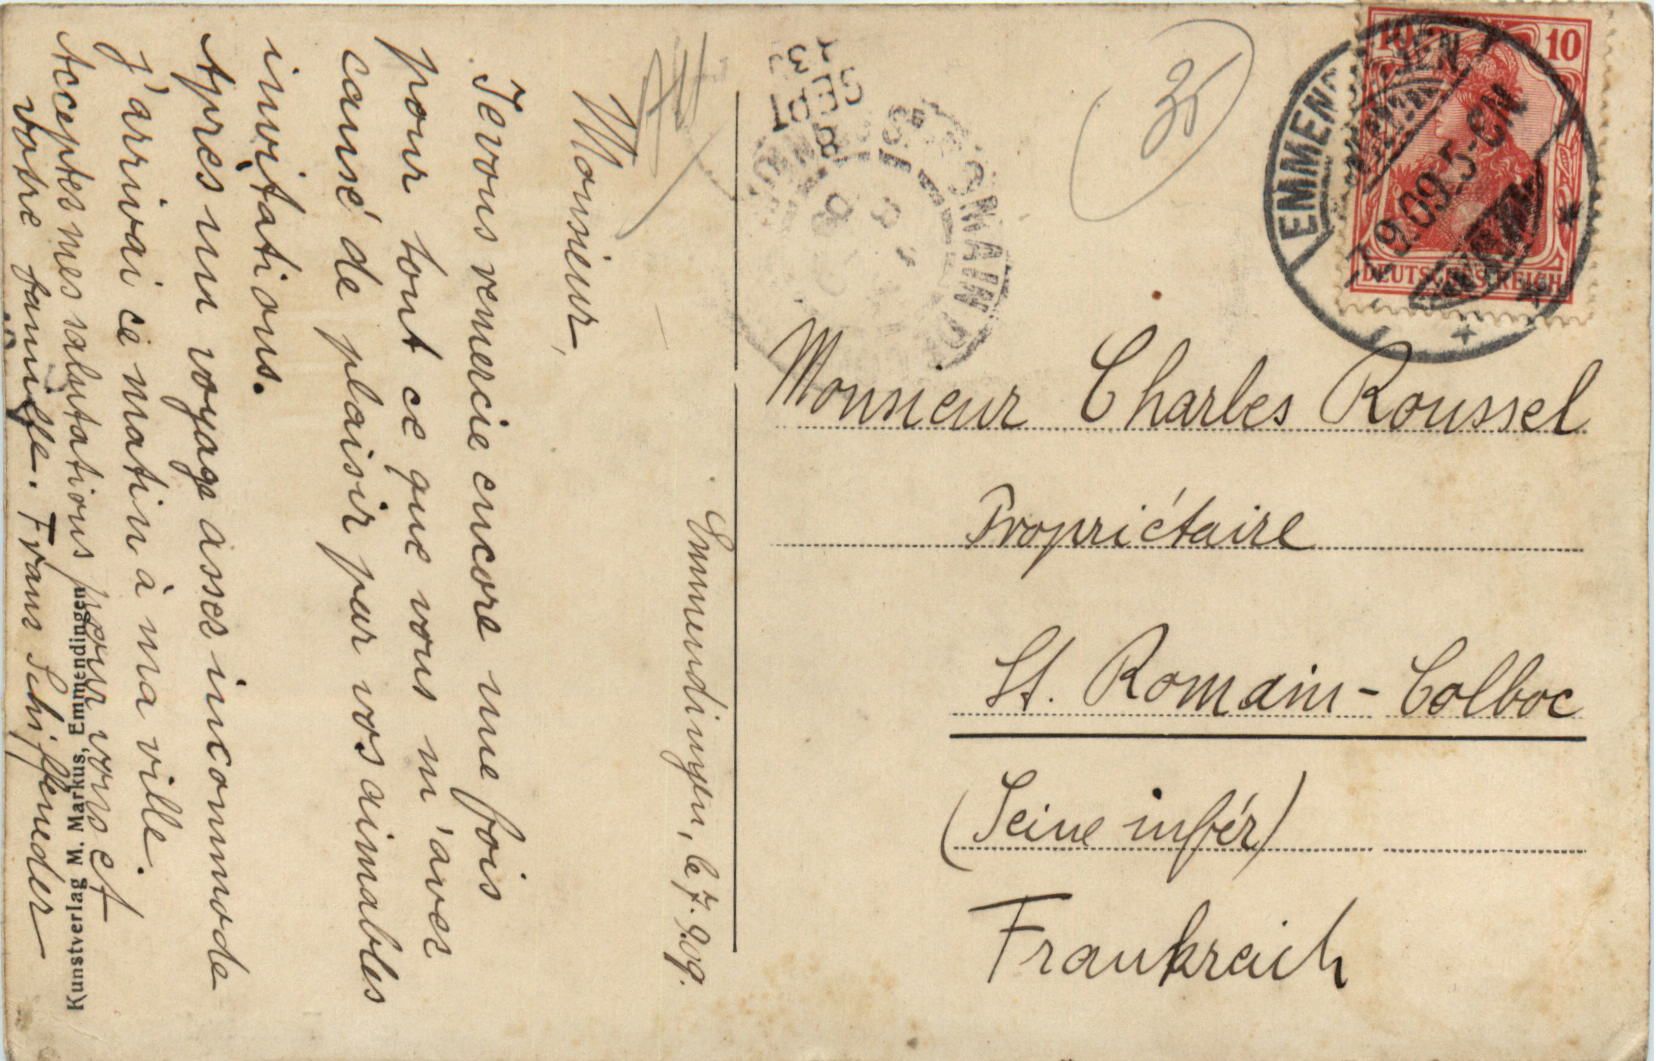 Emmendingen, le 7. 9. 09.
Monsieur,
Je vous remercie encore une fois
pour tout ce que vous m'avez
causé de plaisir par vos aimables
invitations.
Après un voyage assez incommode
j'arrivai ce matin à ma ville.
Acceptez mes salutations pour vous et
votre famille. Franz Schiffeneder
Kunstverlag M. Markus, Emmendingen
Monsieur Charles Roussel
Propriétaire
St. Romain-Colboc
(Seine infér)
Frankreich
35
10
DEUTSCHES REICH
EMMENDINGEN
9.09. 5-6N
8
SEPT
ROMAIN DE